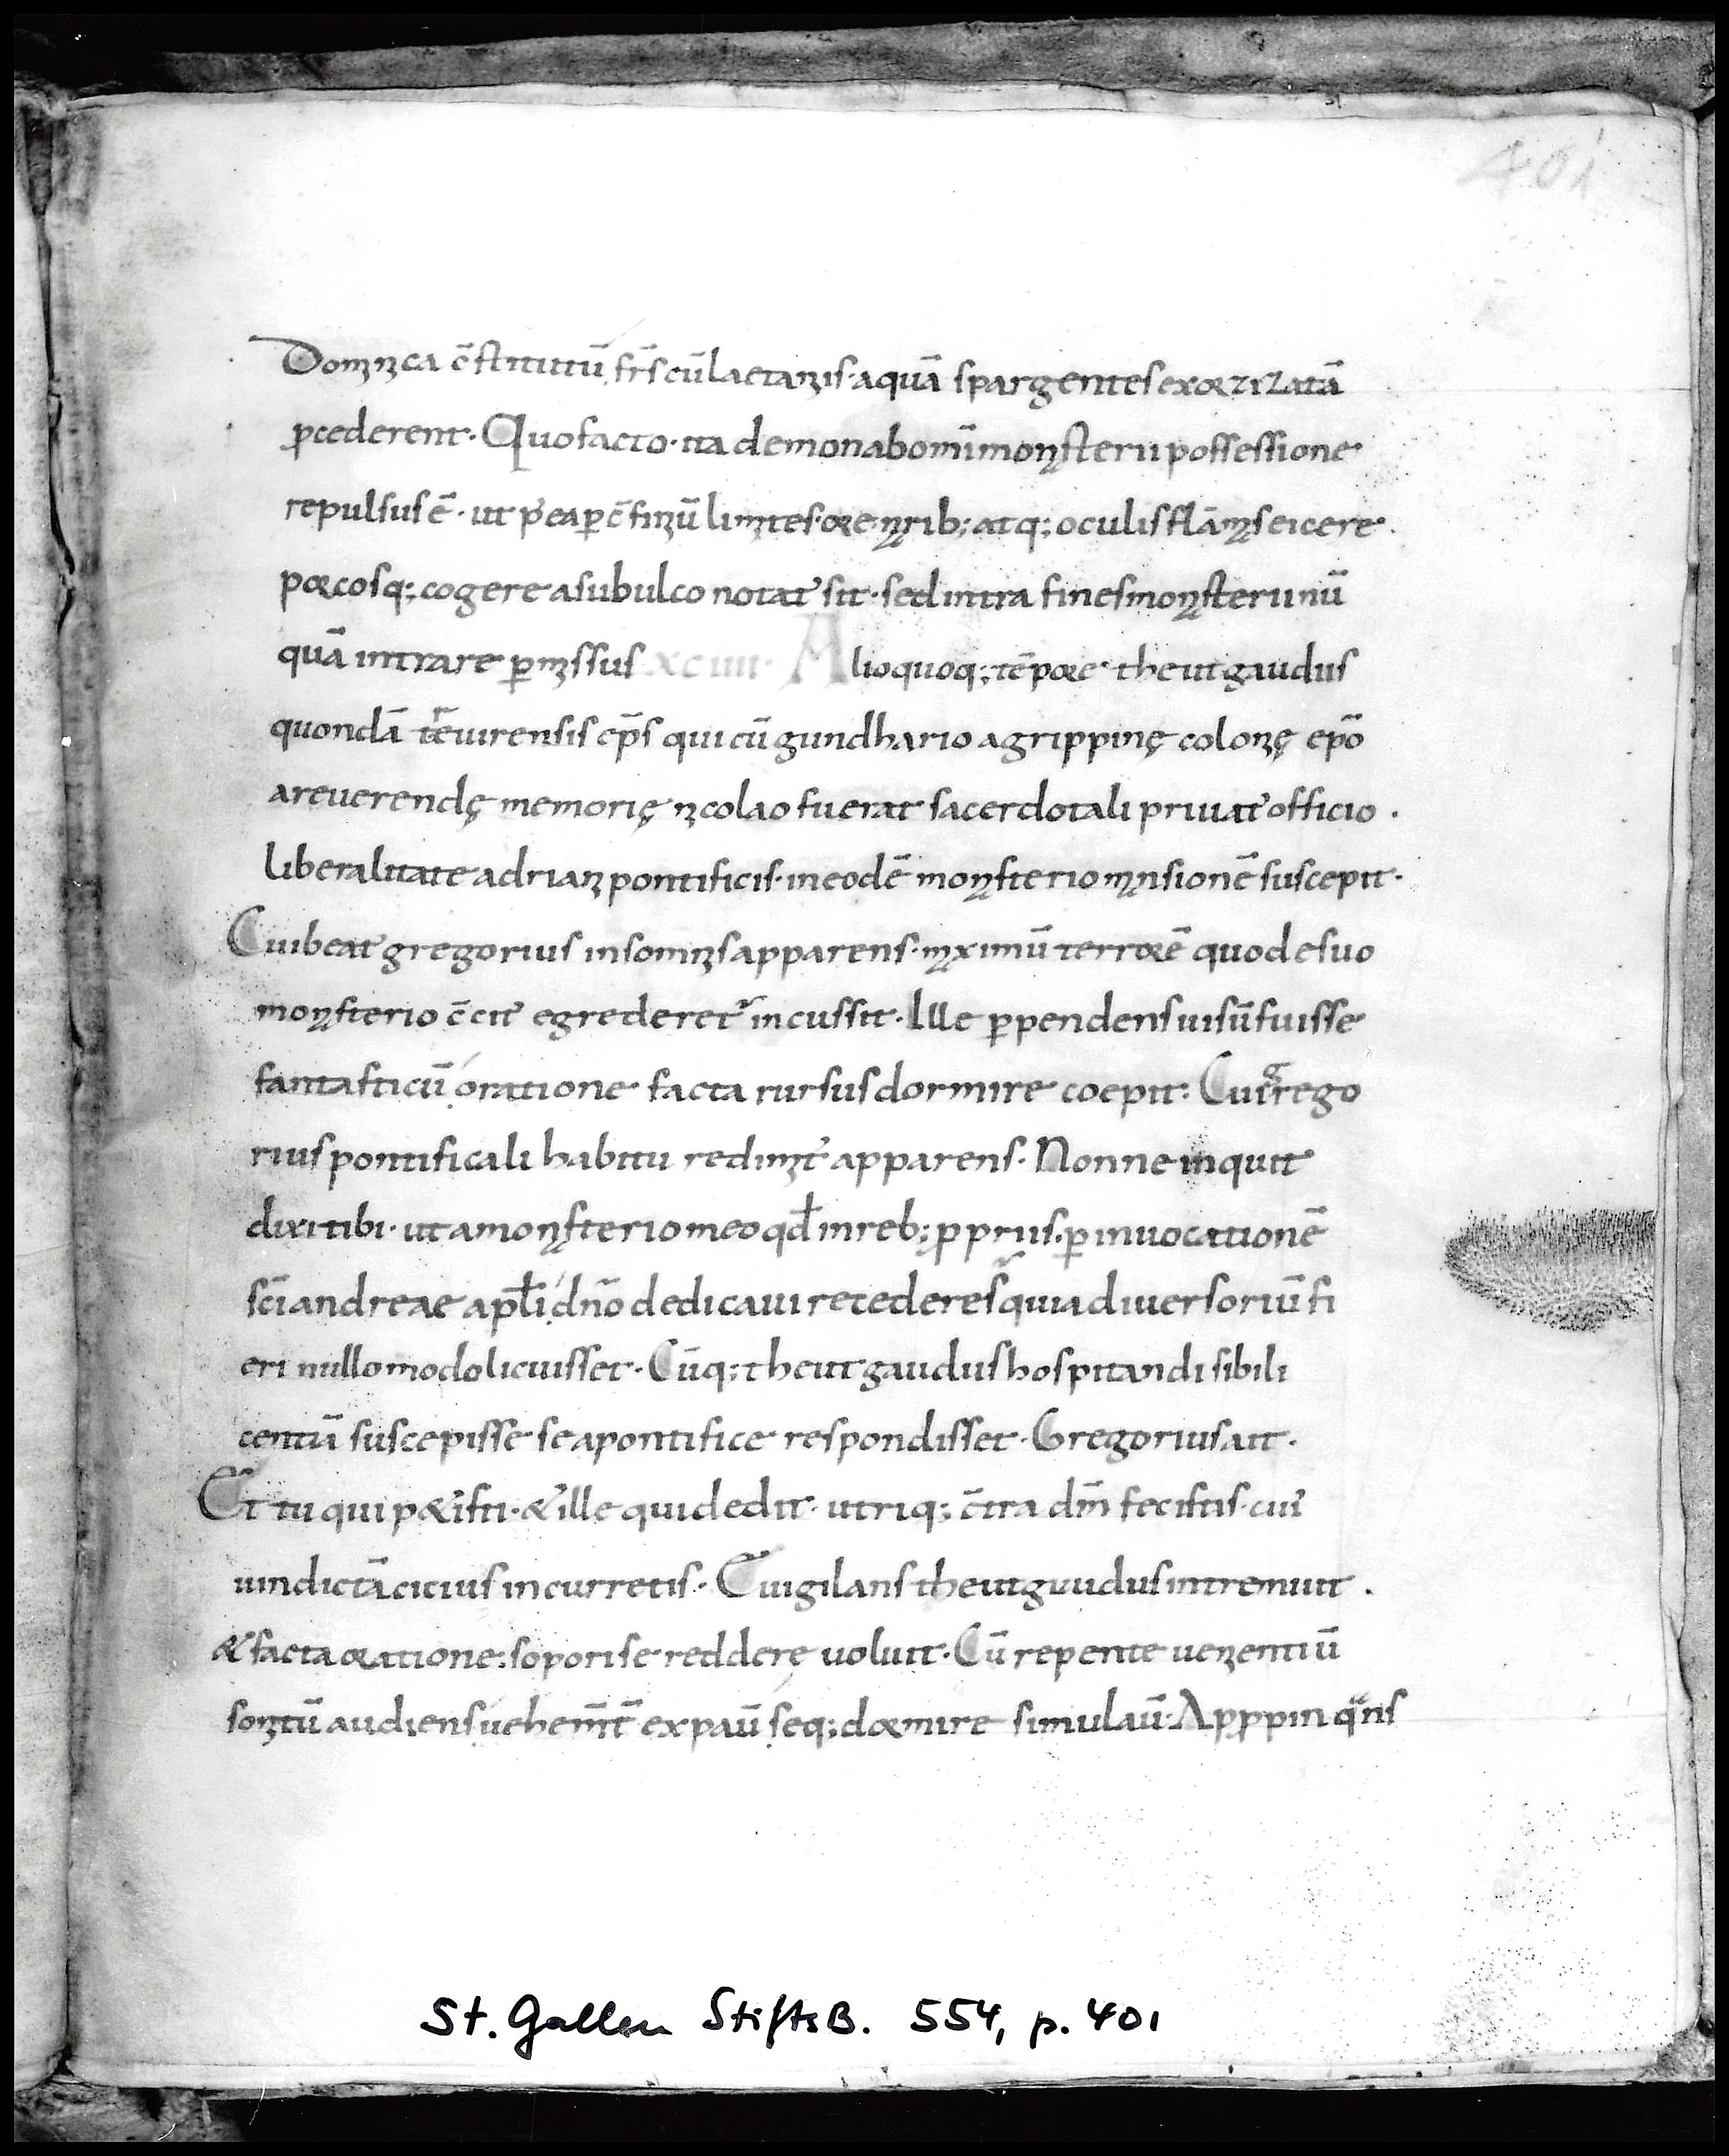 401
Domica c̄stitutū fr̄s cū laetaniis· aquā spargentes exorzizatā
p̱cederent· Quo facto· ita demon ab omī monasterii possessione
repulsus ē· ut p' ea p̱ c̄finiū limites· ore narib; atq; oculis flāmas eicere
porcosq; cogere a subulco notat' sit· sed intra fines monasterii nū
quā intrare p̱missus xciiii· Alio quoq; tēpore· theutgaudus
quondā tr̄euirensis ep̄s qui cū gundhario agrippinę colonię ep̄o
a reuerendę memorię nicolao fuerat sacerdotali priuat' officio·
liberalitate adriani pontificis· in eodē monasterio mansionē suscepit·
Cui beat' gregorius in somnis apparens· maximū terrorē quo de suo
monasterio c̄cit' egrederet' incussit· Ille p̱pendens uisū fuisse
fantasticū oratione facta rursus dormire coepit· Cui grego
rius pontificali habitu redimit' apparens· Nonne inquit
dixi tibi· ut a monasterio meo qd̄ in reb; p̱priis· p̱ inuocationē
sc̄i andreae apl̄i dn̄o dedicaui recederes quia diuersoriū fi
eri nullo modo licuisset· Cūq; theutgaudus hospitandi sibi li
centiā suscepisse se a pontifice respondisset· Gregorius ait·
Et tu qui p&isti· & ille qui dedit· utriq; c̄tra dm̄ fecistis· cui'
uindictā citius incurretis· Euigilans theutgaudus intremuit·
& facta oratione· sopori se reddere uoluit· Cū repente uenientiū
sonitū audiens uehem̄t̄ expauū seq; dormire simulaū· Appp̱inq̄ns
St. Gallen StiftsB. 554, p. 401